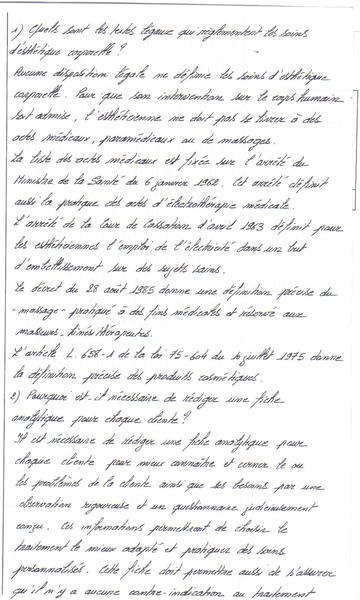 1) Quels sont les textes légaux qui réglementent les soins
d'esthétique corporelle ?
Aucune disposition légale ne définie les soins d'esthétique
corporelle. Pour que son intervention sur le corps humain
soit admise, l'esthéticienne ne doit pas se livrer à des
actes médicaux, paramédicaux ou de massages.
La liste des actes médicaux est fixée sur l'arrêté du
Ministre de la Santé du 6 janvier 1962. Cet arrêté définit
aussi la pratique des actes d'électrothérapie médicale.
L'arrêté de la Cour de Cassation d'avril 1963 définit pour
les esthéticiennes l'emploi de l'électricité dans un but
d'embellissement sur des sujets sains.
Le décret du 28 août 1985 donne une définition précise du
- massage - pratiqué à des fins médicales et réservé aux
masseurs-kinésithérapeutes.
L'article L. 658-1 de la loi 75-604 du 10 juillet 1975 donne
la définition précise des produits cosmétiques.
2) Pourquoi est-il nécessaire de rédiger une fiche
analytique pour chaque cliente ?
Il est nécessaire de rédiger une fiche analytique pour
chaque cliente pour mieux connaître et cerner le ou
les problèmes de la cliente ainsi que ses besoins par une
observation rigoureuse et un questionnaire judicieusement
conçu. Ces informations permettront de choisir le
traitement le mieux adapté et pratiquer des soins
personnalisés. Cette fiche doit permettre aussi de s'assurer
qu'il n'y a aucune contre-indication au traitement